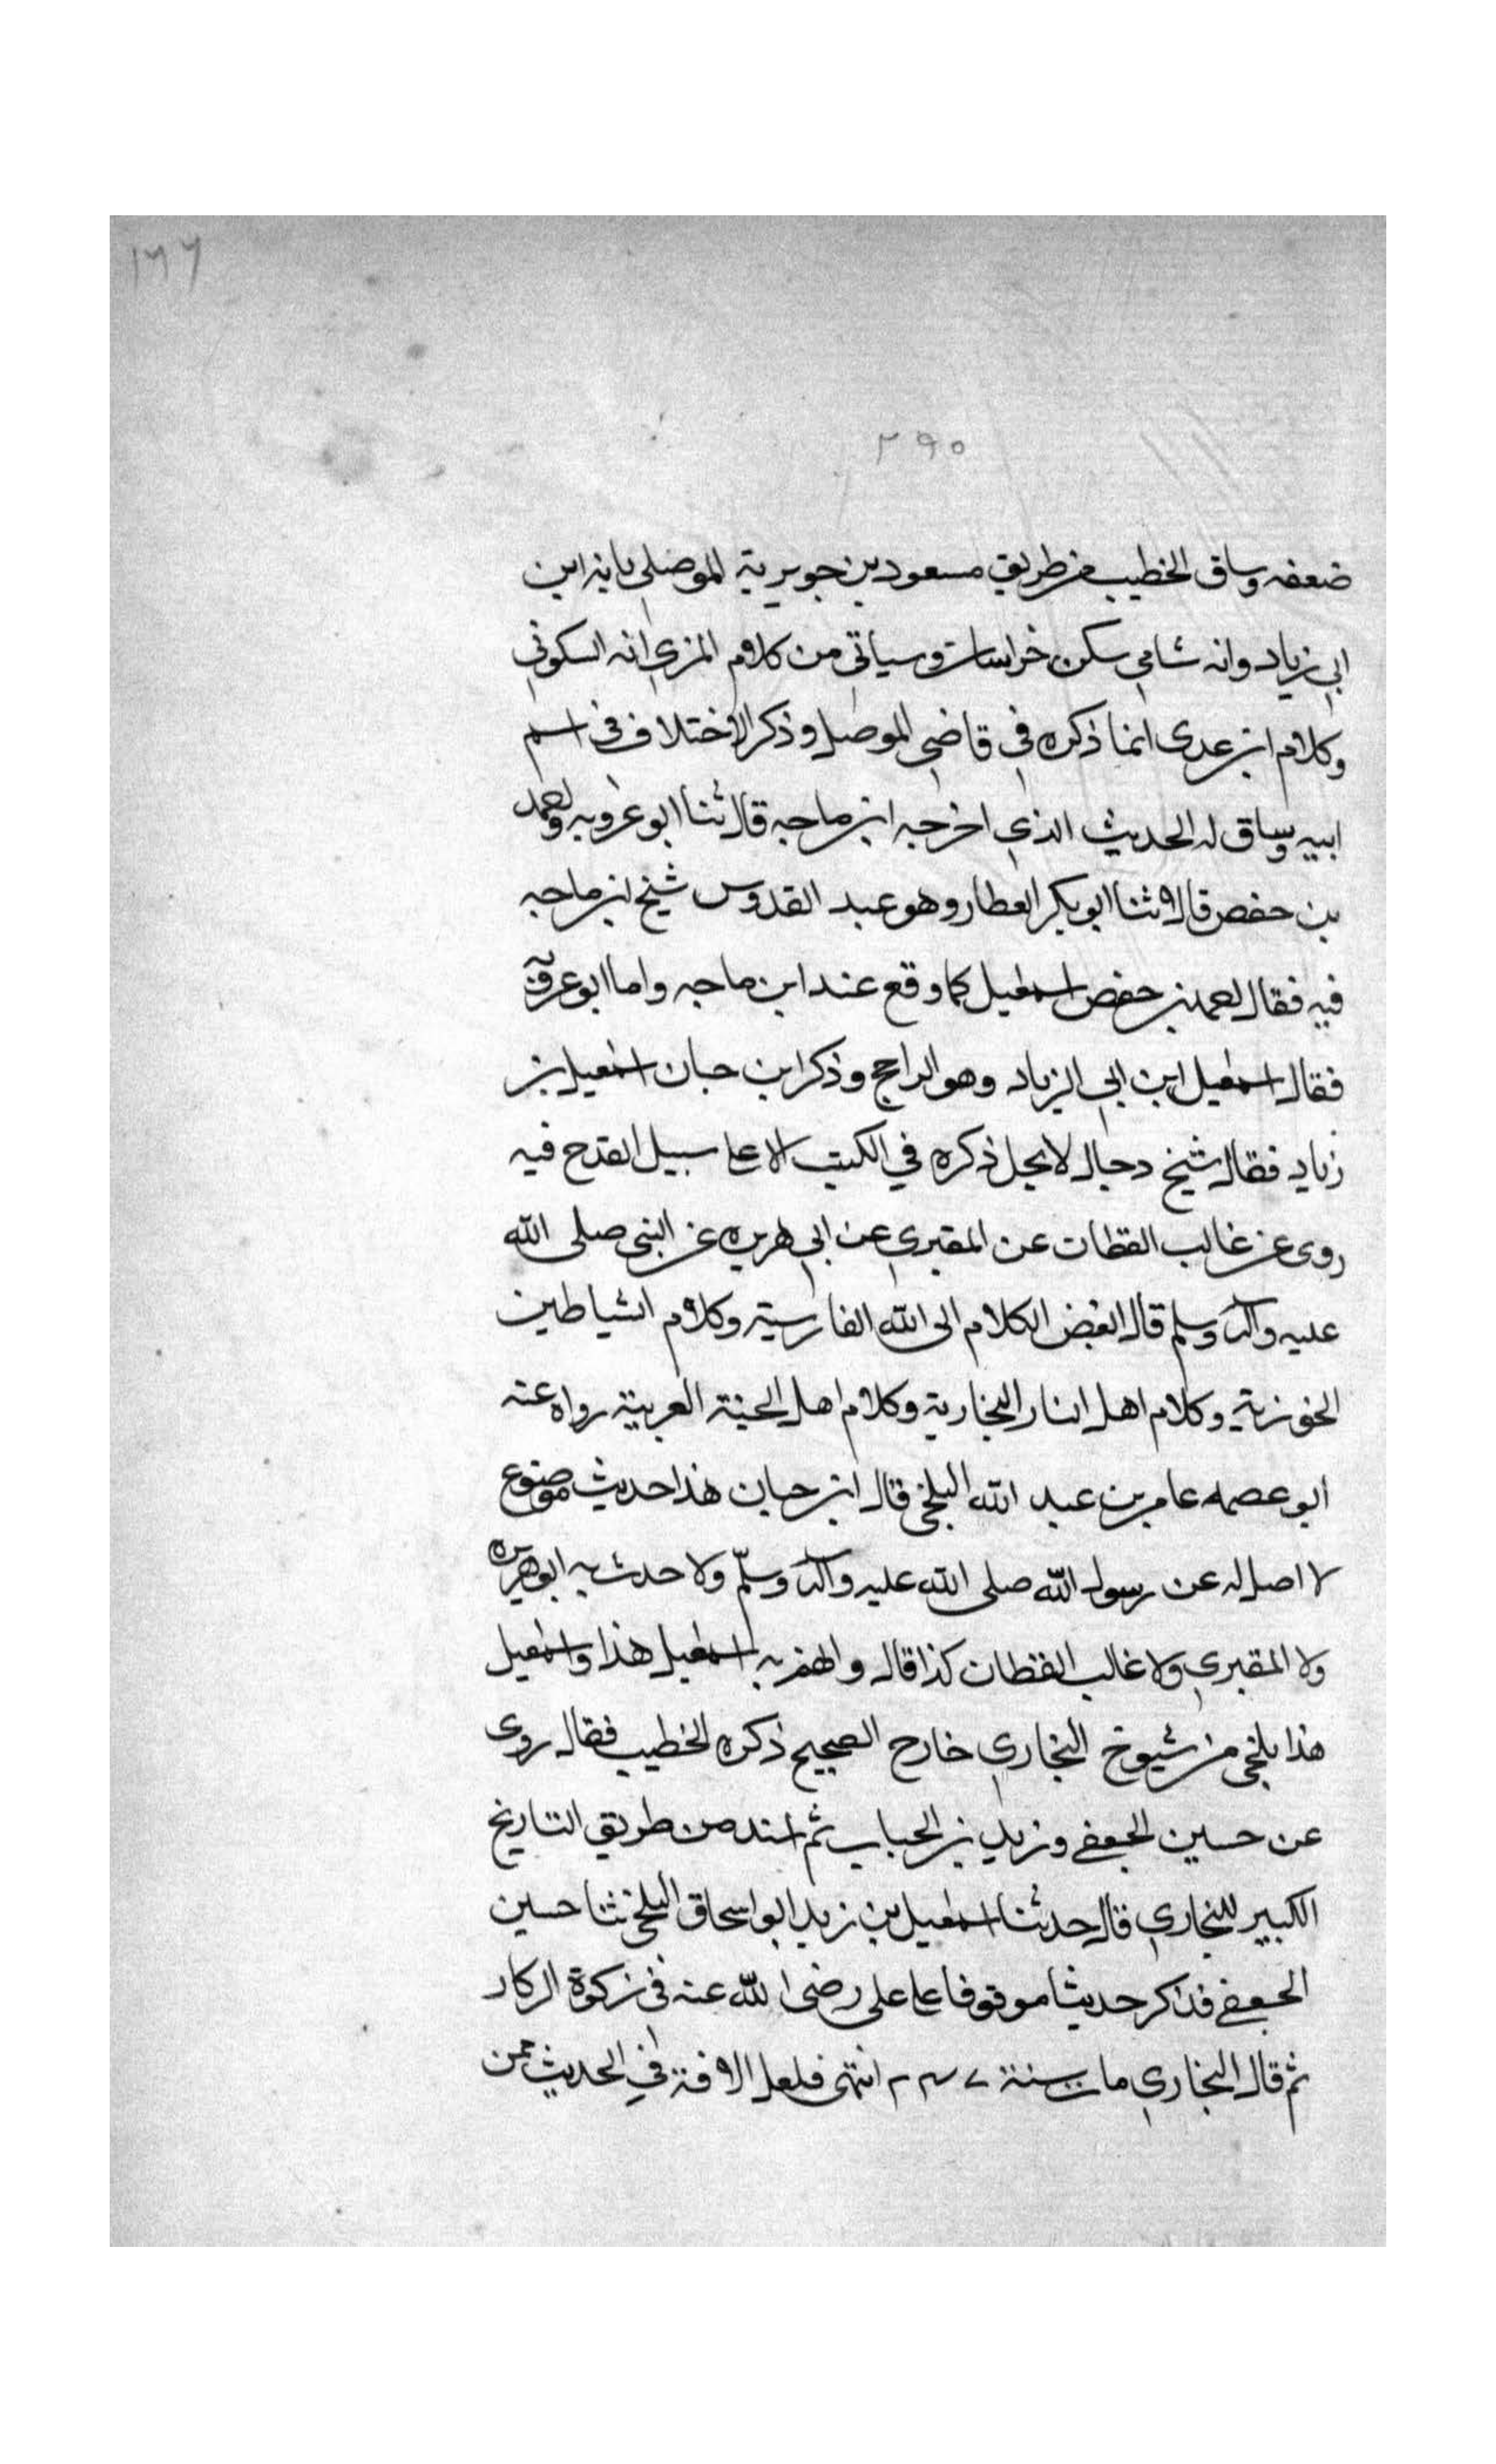 ١٦٦
٢٩٥
ضعفه وساق الخطيب من طريق مسعود بن جويرية الموصلي بانه ابن
ابي زياد وانه شامي سكن خراسان وسياتي من كلام المزي انه السكوني
وكلام ابن عدى انما ذكره في قاضي الموصل وذكر الاختلاف في اسم
ابيه وساق له الحديث الذي اخرجه ابن ماجه قال ثنا ابو عروبه
بن حفص قالا ثنا ابو بكر العطار وهو عبد القدوس شيخ ابن ماجه
فيه فقال بن حفص اسمعيل كما وقع عند ابن ماجه واما ابو عروبة
فقال اسمعيل ابن ابي الزياد وهو الراجح وذكر ابن حبان اسمعيل بن
زياد فقال شيخ دجال لا يحل ذكره في الكتب الا على سبيل القدح فيه
روى عن غالب القطان عن المقبري عن ابي هريره عن النبي صلى الله
عليه وآله وسلم قال ابغض الكلام الى الله الفارسية وكلام الشياطين
الخوزية وكلام اهل النار البخارية وكلام اهل الجنة العربية رواه عنه
ابو عصمه عامر بن عبد الله البلخي قال ابن حبان هذا حديث موضوع
لا اصل له عن رسول الله صلى الله عليه وآله وسلّم ولا حدث به ابو هريره
ولا المقبري ولا غالب القطان كذا قال والهم به اسمعيل هذا واسمعيل
هذا بلخي من شيوخ البخاري خارج الصحيح ذكره الخطيب فقال روى
عن حسين الجعفي وزيد بن الحباب ثم اسند من طريق التاريخ
الكبير للبخاري قال حدثنا اسمعيل بن زيد ابو اسحاق البلخي ثنا حسين
الجعفي فذكر حديثا موقوفا على علي رضى الله عنه في زكوة الركاز
ثم قال البخاري مات سنة ٢٣٧ انتهى فلعل الافة في الحديث ممن